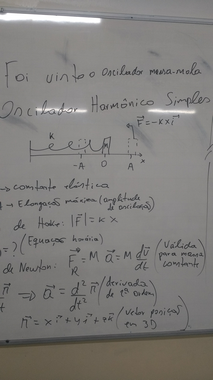 Foi visto o Oscilador massa-mola
Oscilador Harmônico Simples
F = -kx i
k
-A 0 A x
→ constante elástica
A → Elongação máxima (amplitude de oscilação)
de Hooke: |F| = k x
= ? (Equação horária)
de Newton. F_R = M a = M dv/dt (Válida para massa constante)
⇒ a = d²/dt² r (derivada de 2ª ordem)
r = x i + y j + z k (vetor posição em 3D)